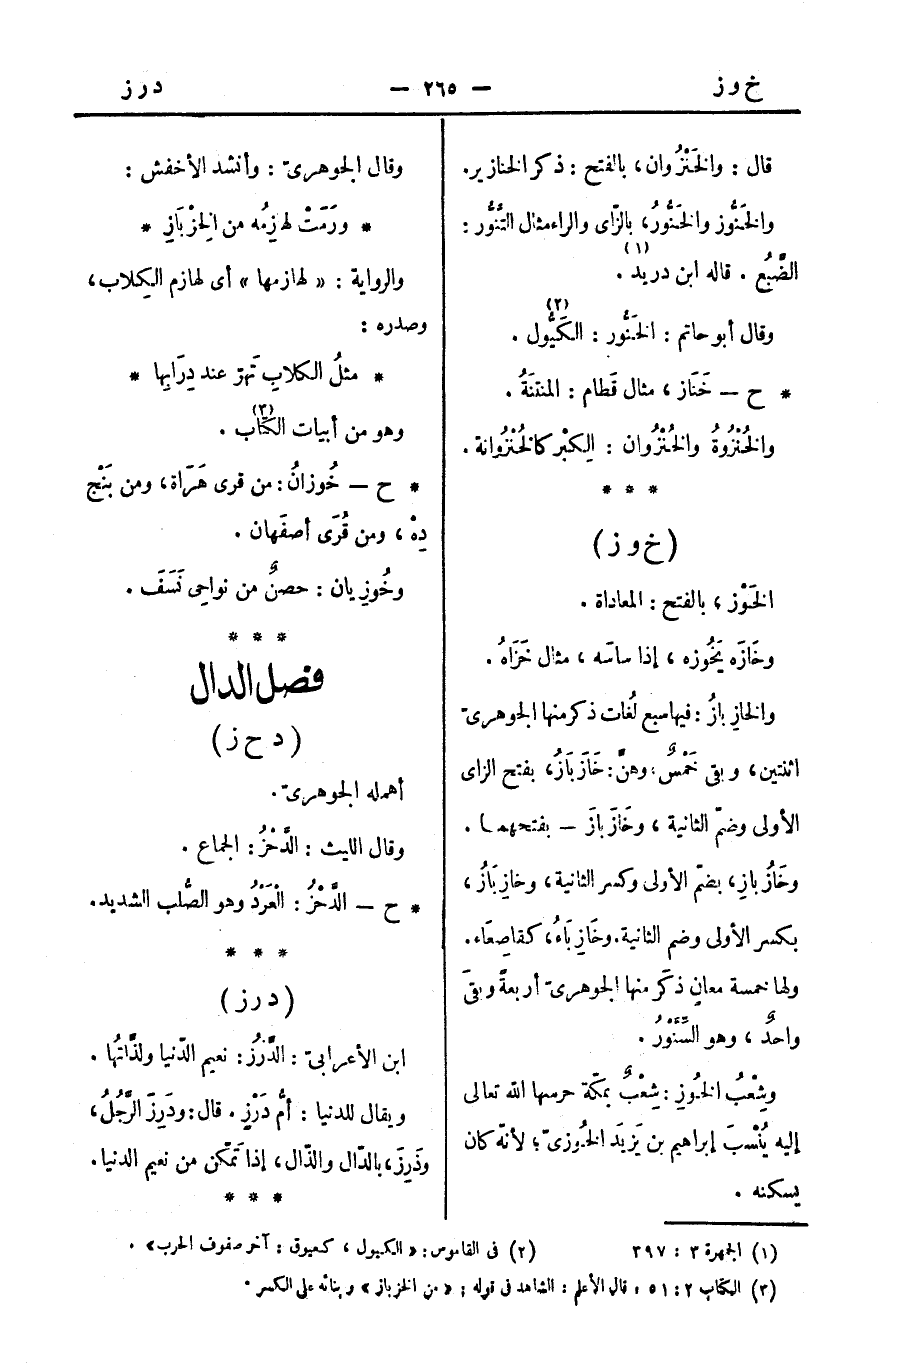 خ و ز
— ٢٦٥ —
د ر ز
قال : والخَنْزُوان ، بالفتح : ذكر الخنازير.
والخَنُّوز والخَنُّورُ، بالزّاى والراء مثال التَّنُّور :
الضَّبُع . قاله ابن دريد (١) .
وقال أبو حاتم : الخَنُّور : الكَيُّول (٢) .
* ح — خَنَاز ، مثال قَطَام : المنتنَةُ .
والخُنْزُوةُ والخُنْزُوان : الكِبْر كالخُنْزُوانة .
* * *
(خ و ز)
الخَوْز ، بالفتح : المعاداة .
وخَازَه يَخُوزه ، إذا ساسَه ، مثال خَزَاهُ .
والخازِ بازُ : فيها سبع لُغات ذكر منها الجوهرىّ
اثنتين ، وبقى خَمْسٌ ؛ وهنّ : خَازَ بَازُ، بفتح الزاى
الأولى وضمّ الثانية ، وخَازَ بازَ — بفتحهما .
وخَازُ بازِ، بضمّ الأولى وكسر الثانية ، وخازِ بَازُ ،
بكسر الأولى وضم الثانية . وخَازِ بَاءُ ، كقاصِعَاء .
ولها خمسة معانٍ ذكَر منها الجوهرىّ أربعةً وبقَ
واحدٌ ، وهو السِّنَّوْرُ .
وشِعْبُ الخُوزِ : شِعْبٌ بمكّة حرسها الله تعالى
إليه يُنْسَبَ إبراهيم بن يَزِيدَ الخُوزىّ ؛ لأنّه كان
يسكنه .
وقال الجوهرىّ : وأنشد الأخفش :
* ورَمَتْ لهازِمُه من الخِزْبَازِ *
والرواية : « لهازمها » أى لهازم الكلاب ،
وصدره :
* مثلُ الكلابِ تَهرّ عند دِرَابِها *
وهو من أبيات الكتاب (٣) .
* ح — خُوزانُ : من قرى هَرَاة ، ومن بَنْج
دِهْ ، ومن قُرَى أصفَهان .
وخُوزِيان : حصنٌ من نواحى نَسَفَ .
* * *
فصل الدال
(د ح ز)
أهمله الجوهرىّ .
وقال الليث : الدَّحْزُ : الجماع .
* ح — الدَّحْزُ : الْعَرْدُ وهو الصُّلب الشديد.
* * *
(د ر ز)
ابن الأعرابىّ : الدَّرْزُ : نعيم الدّنيا ولذّاتُها .
ويقال للدنيا : أمُّ دَرْزٍ . قال : ودَرِزَ الرَّجُلُ ،
وذَرِزَ ، بالدّال والذّال ، إذا تَمكّن من نعيم الدنيا .
* * *
(١) الجمهرة ٣ : ٣٩٧ (٢) فى القاموس : « الكيول ، كعيوق : آخر صفوف الحرب » .
(٣) الكتاب ٢ : ٥١ ، قال الأعلم : الشاهد فى قوله : « من الخزباز » وبنائه على الكسر .